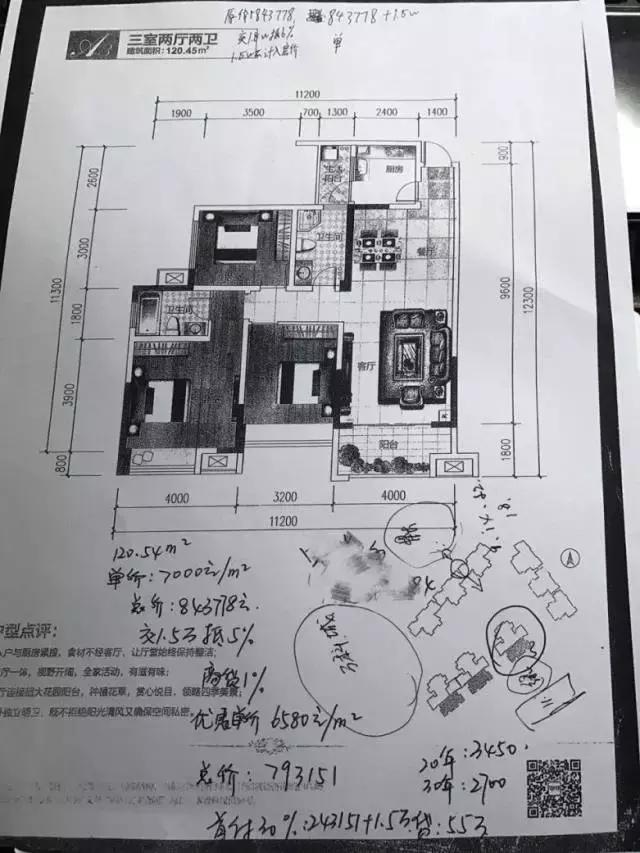 原价843778
843778+1.5w
单
三室两厅两卫
建筑面积:120.45m²
11200
1900 3500 700 1300 2400 1400
2600
3000
11300
1800
3900
800
900
9600
12300
1800
厨房
卫生间
餐厅
卫生间
客厅
阳台
4000 3200 4000
11200
120.54m²
单价:7000元/m²
总价:843778元
交1.5万抵5%
商贷1%
优惠单价 6580元/m²
总价:793151
20年:3450
30年:2700
首付30%:243151+1.5万 贷:55万
户型点评:
入户与厨房紧接,食材不经客厅、让厅堂始终保持整洁;
厅一体,视野开阔,全家活动,有滋有味;
厅连接超大花园阳台,种植花草,赏心悦目,领略四季美景;
独立明卫,既不拒绝阳光清风又确保空间私密。